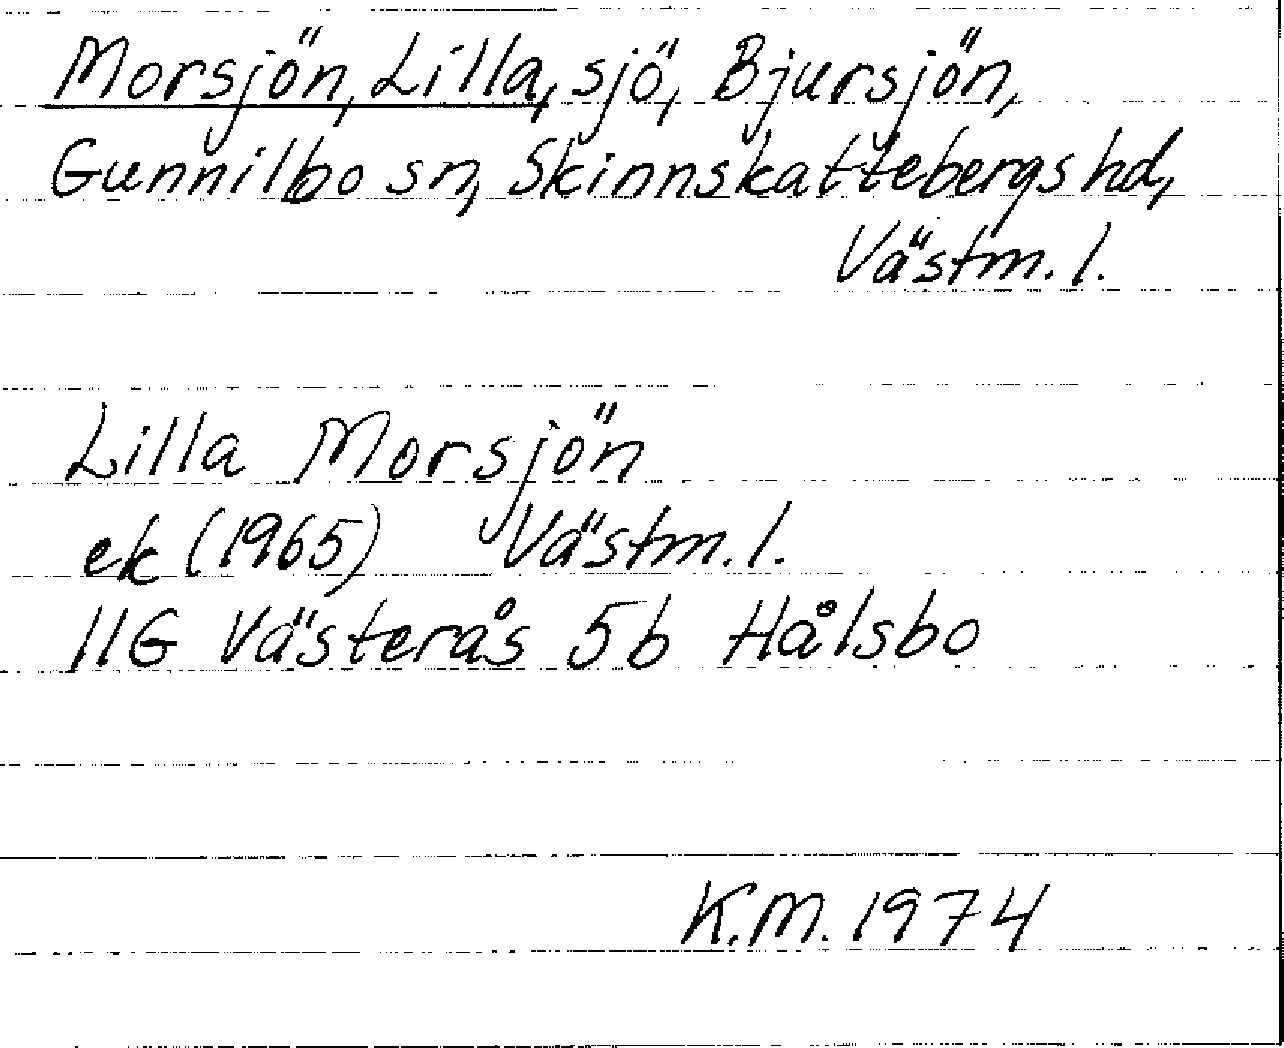 Morsjön, Lilla, sjö, Bjursjön,
Gunnilbo sn, Skinnskattebergs hd,
Västm. l.
Lilla Morsjön
ek (1965) Västm. l.
11G Västerås 5b Hålsbo
K.M. 1974